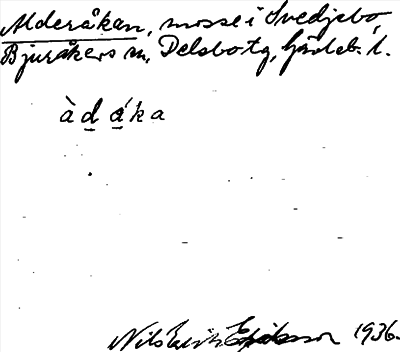 Alderåkan, mosse i Svedjebo,
Bjuråkers sn, Delsbo tg, Gävleb. l.
àdáka
Nils Erik Eriksson 1936.